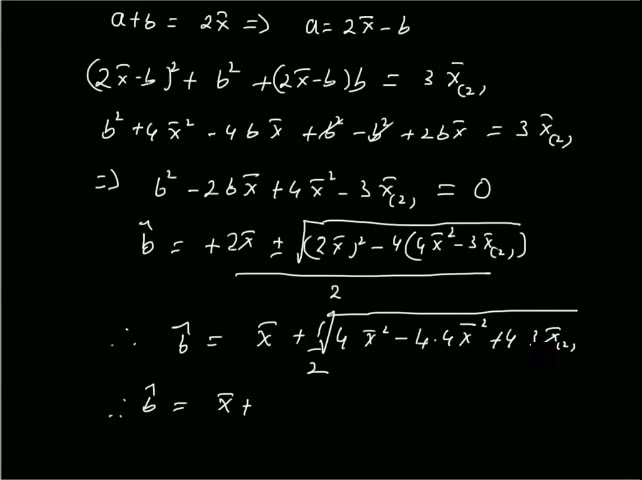 a+b = 2x̄ => a = 2x̄ - b
(2x̄-b)² + b² + (2x̄-b)b = 3 x̄₍₂₎
b² + 4x̄² - 4bx̄ + b² - b² + 2bx̄ = 3 x̄₍₂₎
=> b² - 2bx̄ + 4x̄² - 3x̄₍₂₎ = 0
b̂ = +2x̄ ± √((2x̄)² - 4(4x̄² - 3x̄₍₂₎))
2
∴ b̂ = x̄ + √(4 x̄² - 4·4x̄² + 4·3x̄₍₂₎
2
∴ b̂ = x̄ +